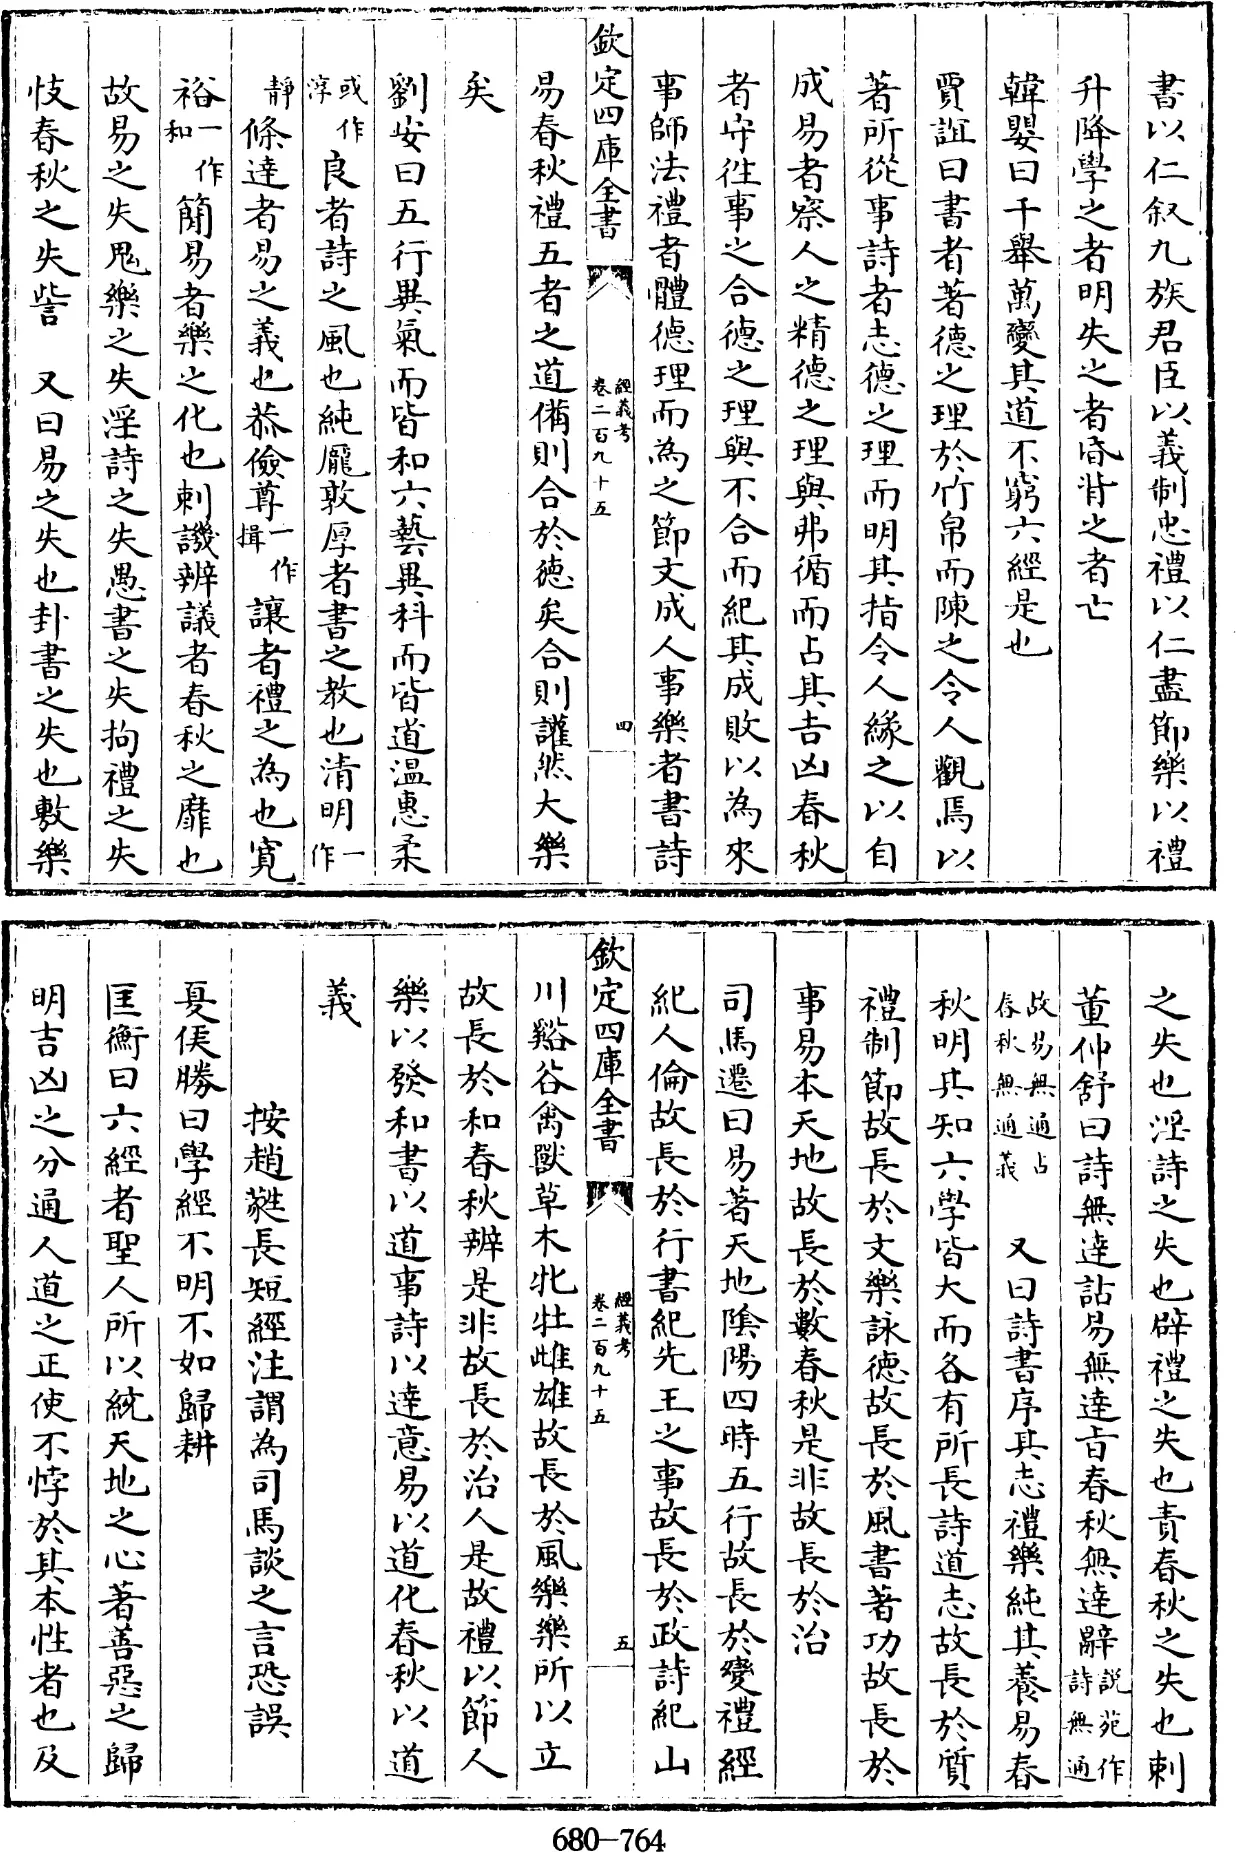 書以仁叙九族君臣以義制忠禮以仁盡節樂以禮
升降學之者明失之者昏背之者亡
韓嬰曰千舉萬變其道不窮六經是也
賈誼曰書者著德之理於竹帛而陳之令人觀焉以
著所從事詩者志德之理而明其指令人緣之以自
成易者察人之精德之理與弗循而占其吉凶春秋
者守徃事之合德之理與不合而紀其成敗以為來
事師法禮者體德理而為之節文成人事樂者書詩
欽定四庫全書
經義考
卷二百九十五
四
易春秋禮五者之道備則合於德矣合則讙然大樂
矣
劉安曰五行異氣而皆和六藝異科而皆道温惠柔
或作淳
良者詩之風也純厖敦厚者書之教也清明
一作靜
條達者易之義也恭儉尊
一作揖
讓者禮之為也寛
裕
一作和
簡易者樂之化也刺譏辨議者春秋之靡也
故易之失鬼樂之失淫詩之失愚書之失拘禮之失
忮春秋之失訾　又曰易之失也卦書之失也敷樂
之失也淫詩之失也辟禮之失也責春秋之失也刺
董仲舒曰詩無達詁易無達言春秋無達辭
說苑作詩無通
故易無通占
春秋無通義
又曰詩書序其志禮樂純其養易春
秋明其知六學皆大而各有所長詩道志故長於質
禮制節故長於文樂詠德故長於風書著功故長於
事易本天地故長於數春秋是非故長於治
司馬遷曰易著天地隂陽四時五行故長於變禮經
紀人倫故長於行書紀先王之事故長於政詩紀山
欽定四庫全書
經義考
卷二百九十五
五
川谿谷禽獸草木牝牡雌雄故長於風樂樂所以立
故長於和春秋辨是非故長於治人是故禮以節人
樂以發和書以道事詩以達意易以道化春秋以道
義
按趙蕤長短經注謂為司馬談之言恐誤
夏侯勝曰學經不明不如歸耕
匡衡曰六經者聖人所以統天地之心著善惡之歸
明吉凶之分通人道之正使不悖於其本性者也及
680—764